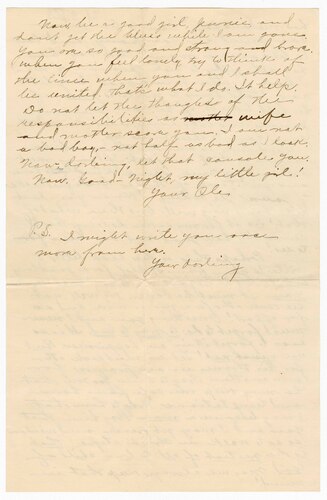 Now be a good girl, and
don't get the blues while I am gone.
You are so good and strong and brave.
When you feel lonely try to think of
the time when you and I shall
be united, thats what I do. It help.
Do not let the thoughts of the
responsibilities as mother wife
and mother scare you. I am not
a bad boy, not half as bad as I look.
Now, darling, let that console you.
Now, Good-Night, my little girl!
Your Ole
P.S. I might write you once
more from here.
Your Darling